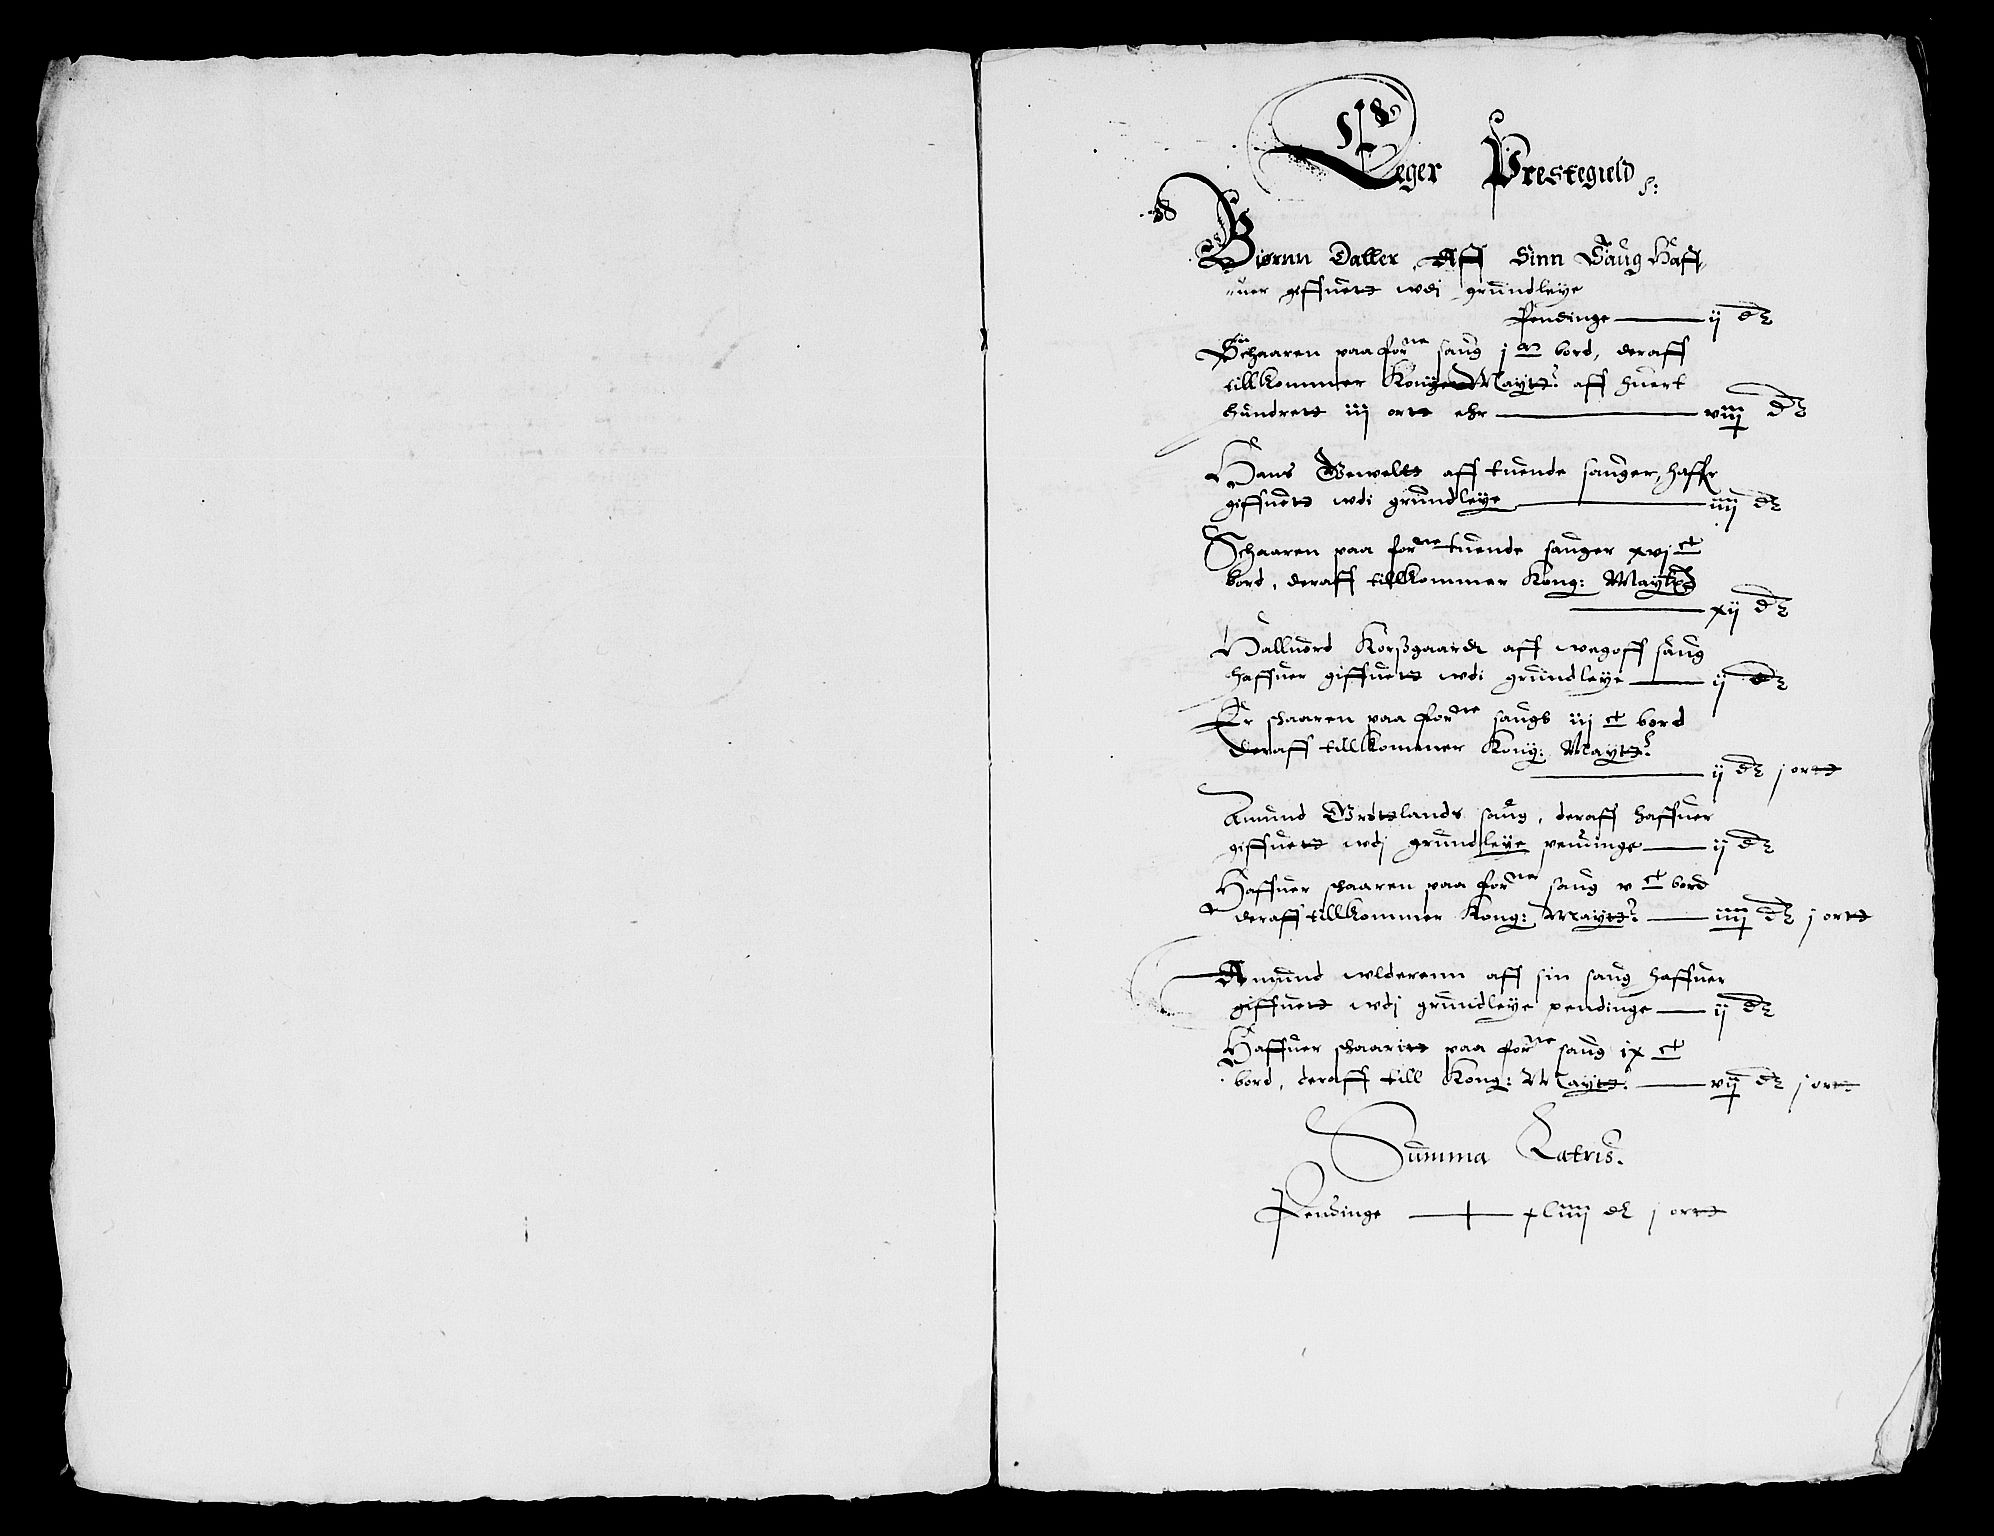 Leger Prestegield
Biørnn Daller, Aff Sinn Saug Haff-
uer giffuett wdi grundleye
Pendinge ij dr
Schaaren paa forne saug j m bord, deraff
tillkommer Konge Maytt: aff huert
hundrett iij ortt ehr viij dr
Hans aff tuende sauger, haffr
giffuett wdi grundleye iiij dr
Schaaren paa forne tuende sauger xvj ct
bord, deraff tillkommer Kong: Maytt
xij dr
Halluord Korßgaardt aff saug
haffuer giffuett wdi grundleye ij dr
Er schaaren paa forne saugh iij ct bord
deraff tillkommer Kong: Maytt:
ij dr j ortt
Amund saug, deraff haffuer
giffuett wdj grundleye pendinge ij dr
Haffuer schaaren paa forne saug v ct bord
deraff tillkommer Kong: Maytt: iiij dr j ortt
Amund wlderenn aff sin saug haffuer
giffuett wdj grundleye pendinge ij dr
Haffuer schaaritt paa forne saug ix ct
bord, deraff till Kong: Maytt: vij dr j ortt
Summa Latris.
Pendinge xliiij dr j ortt